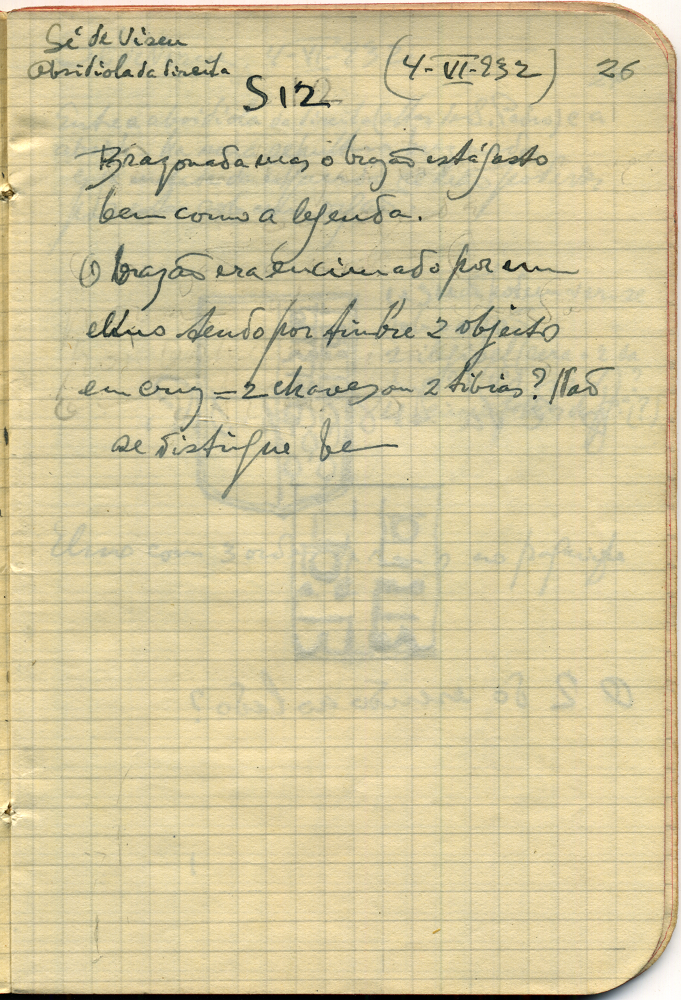 Sé de Viseu
Absidiola da direita
(4-VI-932) 26
S12
Brazonada mas o brazão está gasto
bem como a legenda.
O brazão era encimado por um
elmo tendo por timbre 2 objecto
em cruz = 2 chaves ou 2 tibias? Não
se distingue be